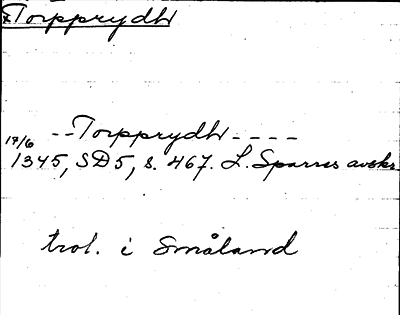 *Torpprydh
--Torpprydh----
17/6
1345, SD5, s. 467. L. Sparres avskr.
trol. i Småland